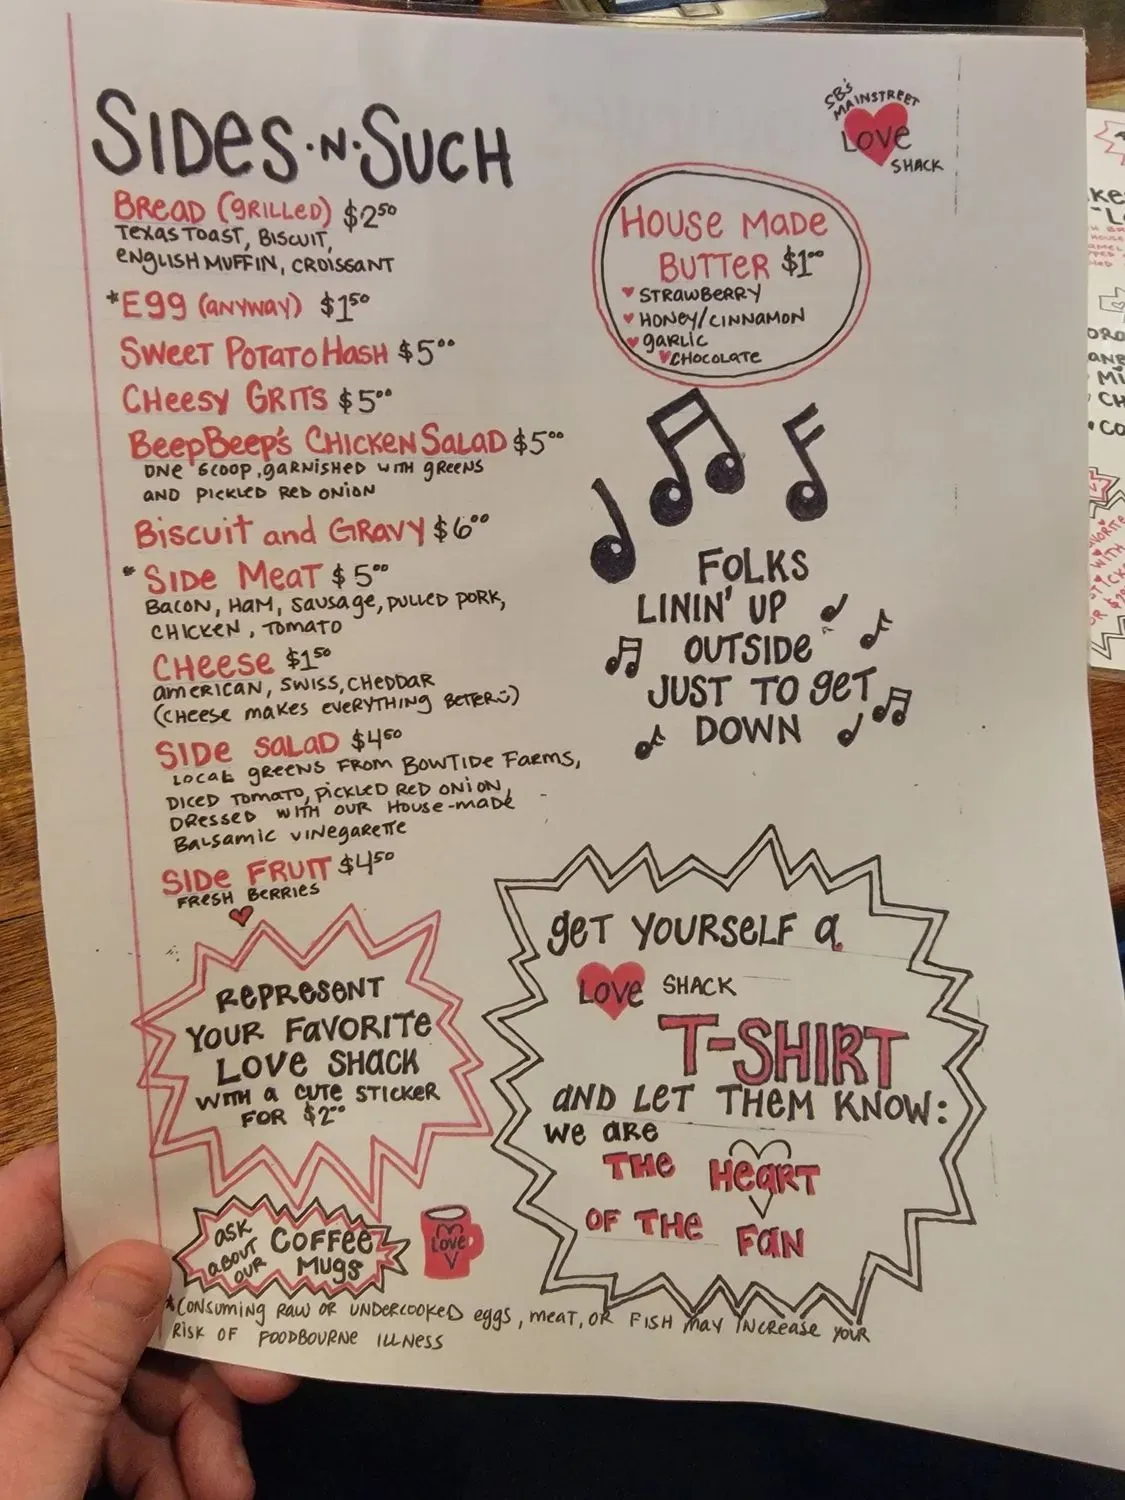 SIDES·N·SUCH
SB's
MAINSTREET
LOVE
SHACK
BREAD (GRILLED) $2⁵⁰
TEXAS TOAST, BISCUIT,
ENGLISH MUFFIN, CROISSANT
*Egg (ANYWAY) $1⁵⁰
SWEET POTATO HASH $5⁰⁰
CHEESY GRITS $5⁰⁰
BeepBeep's CHICKEN SALAD $5⁰⁰
ONE SCOOP, GARNISHED WITH GREENS
AND PICKLED RED ONION
BISCUIT and GRAVY $6⁰⁰
* SIDE MEAT $5⁰⁰
BACON, HAM, SAUSAGE, PULLED PORK,
CHICKEN, TOMATO
CHEESE $1⁵⁰
AMERICAN, SWISS, CHEDDAR
(CHEESE MAKES EVERYTHING BETTER:)
SIDE SALAD $4⁵⁰
LOCAL GREENS FROM BOWTIDE FARMS,
DICED TOMATO, PICKLED RED ONION,
DRESSED WITH OUR HOUSE-MADE
BALSAMIC VINEGARETTE
SIDE FRUIT $4⁵⁰
FRESH BERRIES
HOUSE MADE
BUTTER $1⁰⁰
♥ STRAWBERRY
♥ HONEY/CINNAMON
♥ GARLIC
♥ CHOCOLATE
FOLKS
LININ' UP
OUTSIDE
JUST TO GET
DOWN
REPRESENT
YOUR FAVORITE
LOVE SHACK
WITH A CUTE STICKER
FOR $2⁰⁰
GET YOURSELF A
LOVE SHACK
T-SHIRT
AND LET THEM KNOW:
WE ARE
THE HEART
OF THE FAN
ASK
ABOUT
OUR
COFFEE
MUGS
LOVE
*CONSUMING RAW OR UNDERCOOKED EGGS, MEAT, OR FISH MAY INCREASE YOUR
RISK OF FOODBOURNE ILLNESS